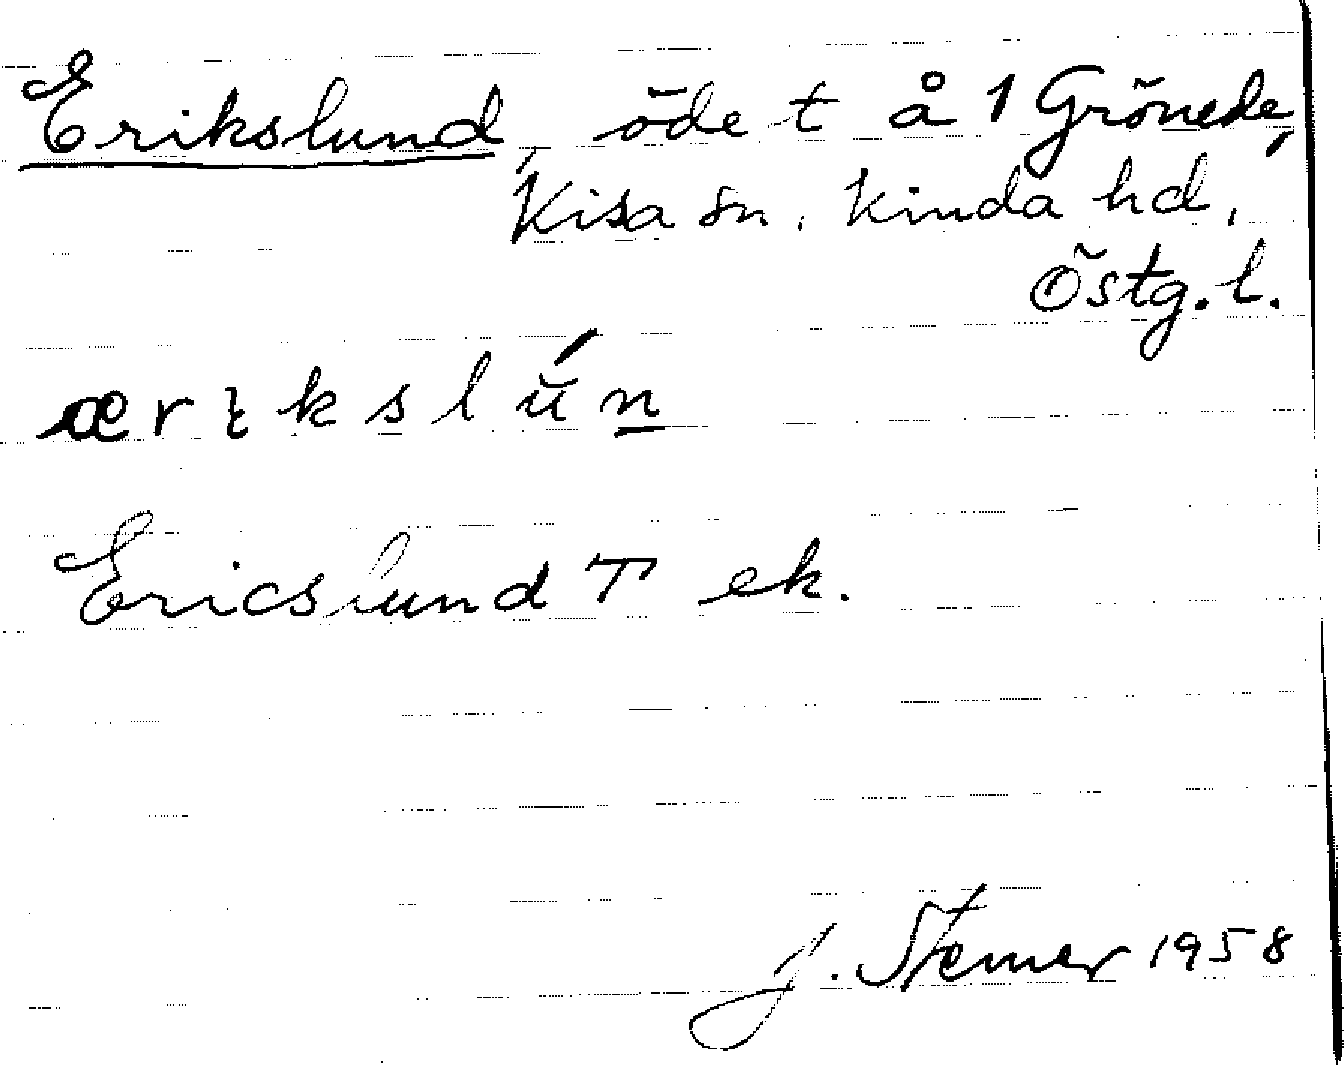 Erikslund, öde t å 1 Grönede,
Kisa sn, Kinda hd,
Östg. l.
ærɩkslŭ́n̲
Ericslund T ek.
J. Stemer 1958